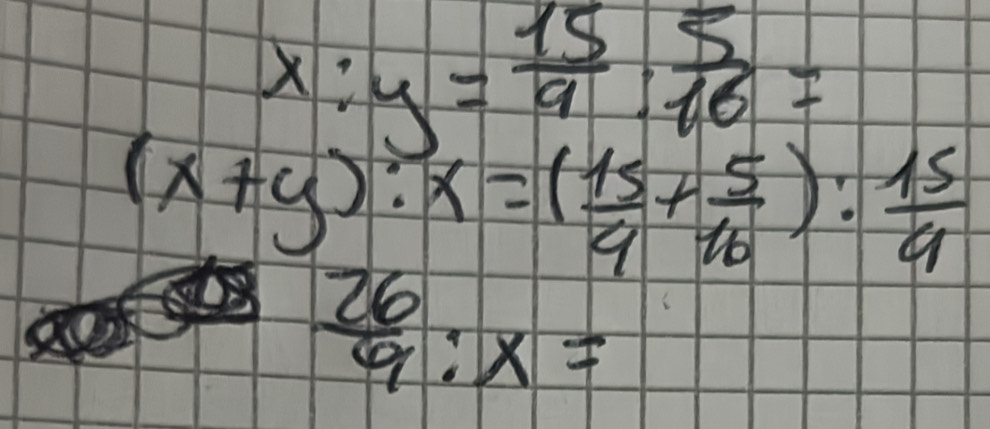 x : y = 15/9 : 5/16 =
(x + y) : x = (15/9 + 5/16) : 15/9
26/9 : x =